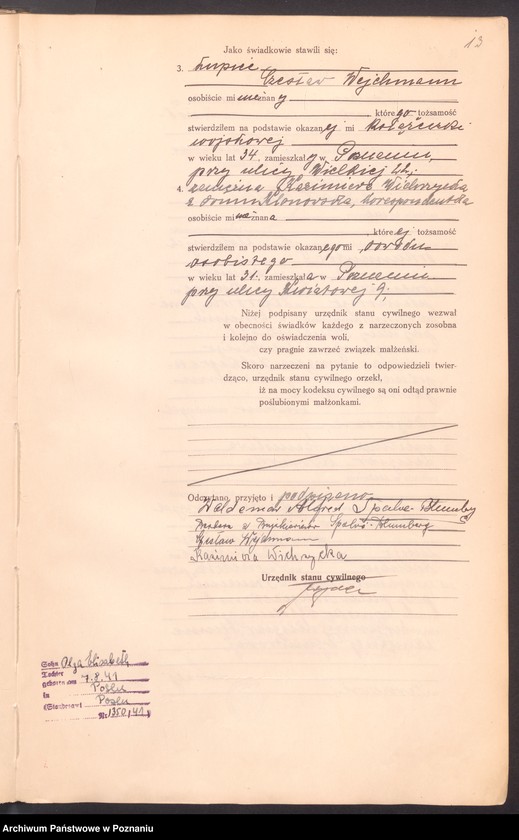 13
Jako świadkowie stawili się:
3. kupiec
Czesław Wejchmann
osobiście mi nieznany
którego tożsamość
stwierdziłem na podstawie okazanej mi książeczki
wojskowej
w wieku lat 34, zamieszkały w Poznaniu,
przy ulicy Wielkiej 22;
4. zamężna Kazimiera Wichrzycka
z domu Klonowska, korespondentka
osobiście mi nieznana
której tożsamość
stwierdziłem na podstawie okazanego mi dowodu
osobistego
w wieku lat 31, zamieszkała w Poznaniu
przy ulicy Kwiatowej 9,
Niżej podpisany urzędnik stanu cywilnego wezwał
w obecności świadków każdego z narzeczonych zosobna
i kolejno do oświadczenia woli,
czy pragnie zawrzeć związek małżeński.
Skoro narzeczeni na pytanie to odpowiedzieli twier-
dząco, urzędnik stanu cywilnego orzekł,
iż na mocy kodeksu cywilnego są oni odtąd prawnie
poślubionymi małżonkami.
Odczytano, przyjęto i podpisano
Waldemar Alfred Spalwe-Blumberg
Spalwe-Blumberg
Czesław Wejchmann
Kazimiera Wichrzycka
Urzędnik stanu cywilnego
Sohn Olga Elisabeth
Tochter
geboren am 7.8.41
in Posen
(Standesamt Posen
Nr 1350/41)
Archiwum Państwowe w Poznaniu